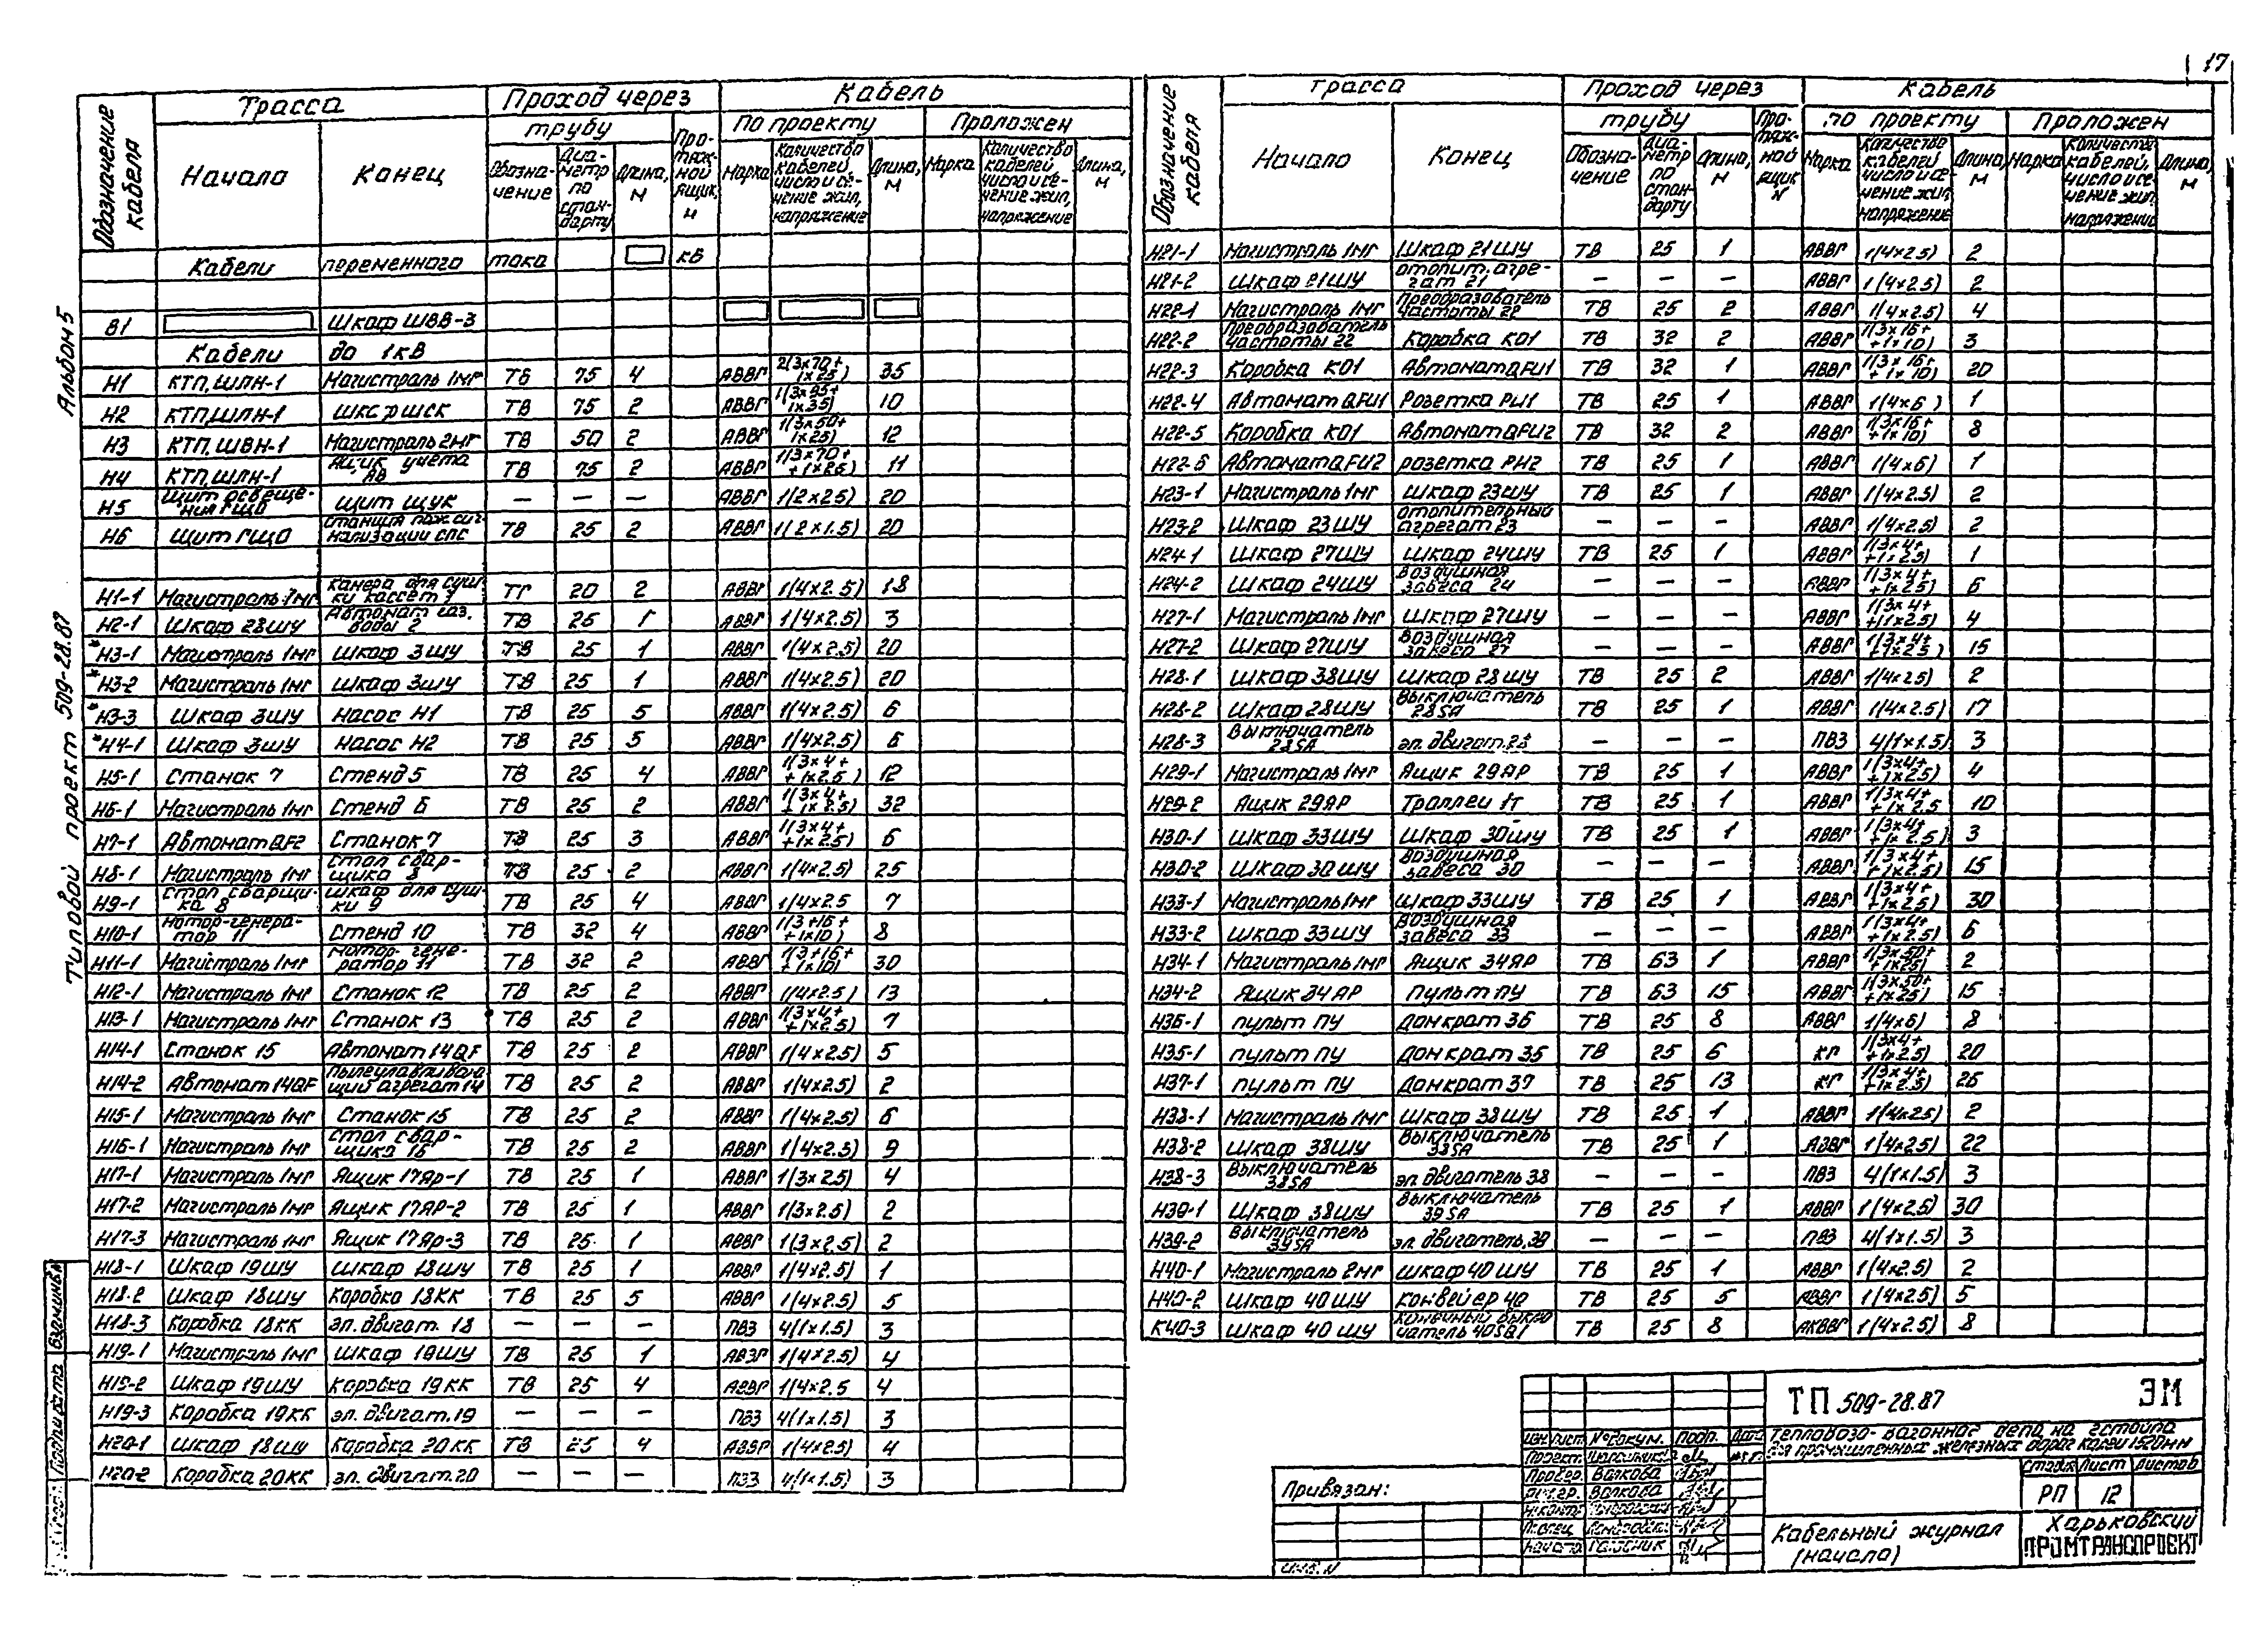 17
Альбом 5
Типовой проект 509-28.87
Обозначение кабеля | Трасса | Проход через | Кабель
трубу | Протяжной ящик, N | По проекту | Проложен
Начало | Конец | Обозначение | Диаметр по стандарту | Длина, м | Марка | Количество кабелей, число и сечение жил, напряжение | Длина, м | Марка | Количество кабелей, число и сечение жил, напряжение | Длина, м
Кабели переменного тока кВ
В1 | Шкаф ШВВ-3
Кабели до 1кВ
Н1 | КТП, ШЛН-1 | Магистраль 1мг | ТВ | 75 | 4 | АВВГ | 2(3×70+1×25) | 35
Н2 | КТП, ШЛН-1 | Шкаф шск | ТВ | 75 | 2 | АВВГ | 1(3×95+1×35) | 10
Н3 | КТП, ШВН-1 | Магистраль 2мг | ТВ | 50 | 2 | АВВГ | 1(3×50+1×25) | 12
Н4 | КТП, ШЛН-1 | Ящик учета АВ | ТВ | 75 | 2 | АВВГ | 1(3×70+1×25) | 11
Н5 | Щит освещения ГЩО | Щит ЩУК | — | — | — | АВВГ | 1(2×2.5) | 20
Н6 | Щит ГЩО | Станция пож. сигнализации СПС | ТВ | 25 | 2 | АВВГ | 1(2×1.5) | 20
Н1-1 | Магистраль 1мг | Камера для сушки кассет 1 | ТГ | 20 | 2 | АВВГ | 1(4×2.5) | 18
Н2-1 | Шкаф 28шу | Автомат газ. воды 2 | ТВ | 25 | 1 | АВВГ | 1(4×2.5) | 3
*Н3-1 | Магистраль 1мг | Шкаф 3шу | ТВ | 25 | 1 | АВВГ | 1(4×2.5) | 20
*Н3-2 | Магистраль 1мг | Шкаф 3шу | ТВ | 25 | 1 | АВВГ | 1(4×2.5) | 20
*Н3-3 | Шкаф 3шу | Насос Н1 | ТВ | 25 | 5 | АВВГ | 1(4×2.5) | 6
*Н4-1 | Шкаф 3шу | Насос Н2 | ТВ | 25 | 5 | АВВГ | 1(4×2.5) | 6
Н5-1 | Станок 7 | Стенд 5 | ТВ | 25 | 4 | АВВГ | 1(3×4+1×2.5) | 12
Н6-1 | Магистраль 1мг | Стенд 6 | ТВ | 25 | 2 | АВВГ | 1(3×4+1×2.5) | 32
Н7-1 | Автомат QF2 | Станок 7 | ТВ | 25 | 3 | АВВГ | 1(3×4+1×2.5) | 6
Н8-1 | Магистраль 1мг | Стол сварщика 8 | ТВ | 25 | 2 | АВВГ | 1(4×2.5) | 25
Н9-1 | Стол сварщика 8 | Шкаф для сушки 9 | ТВ | 25 | 4 | АВВГ | 1(4×2.5 | 7
Н10-1 | Мотор-генератор 11 | Стенд 10 | ТВ | 32 | 4 | АВВГ | 1(3+16+1×10) | 8
Н11-1 | Магистраль 1мг | Мотор-генератор 11 | ТВ | 32 | 2 | АВВГ | 1(3+16+1×10) | 30
Н12-1 | Магистраль 1мг | Станок 12 | ТВ | 25 | 2 | АВВГ | 1(4×2.5) | 13
Н13-1 | Магистраль 1мг | Станок 13 | ТВ | 25 | 2 | АВВГ | 1(3×4+1×2.5) | 7
Н14-1 | Станок 15 | Автомат 14QF | ТВ | 25 | 2 | АВВГ | 1(4×2.5) | 5
Н14-2 | Автомат 14QF | Пылеулавливающий агрегат 14 | ТВ | 25 | 2 | АВВГ | 1(4×2.5) | 2
Н15-1 | Магистраль 1мг | Станок 15 | ТВ | 25 | 2 | АВВГ | 1(4×2.5) | 6
Н16-1 | Магистраль 1мг | Стол сварщика 16 | ТВ | 25 | 2 | АВВГ | 1(4×2.5) | 9
Н17-1 | Магистраль 1мг | Ящик 17Яр-1 | ТВ | 25 | 1 | АВВГ | 1(3×2.5) | 4
Н17-2 | Магистраль 1мг | Ящик 17ЯР-2 | ТВ | 25 | 1 | АВВГ | 1(3×2.5) | 2
Н17-3 | Магистраль 1мг | Ящик 17Яр-3 | ТВ | 25 | 1 | АВВГ | 1(3×2.5) | 2
Н18-1 | Шкаф 19шу | Шкаф 18шу | ТВ | 25 | 1 | АВВГ | 1(4×2.5) | 1
Н18-2 | Шкаф 18шу | Коробка 18КК | ТВ | 25 | 5 | АВВГ | 1(4×2.5) | 5
Н18-3 | Коробка 18КК | эл. двигат. 18 | — | — | — | ПВ3 | 4(1×1.5) | 3
Н19-1 | Магистраль 1мг | Шкаф 19шу | ТВ | 25 | 1 | АВВГ | 1(4×2.5) | 4
Н19-2 | Шкаф 19шу | Коробка 19КК | ТВ | 25 | 4 | АВВГ | 1(4×2.5 | 4
Н19-3 | Коробка 19КК | эл. двигат. 19 | — | — | — | ПВ3 | 4(1×1.5) | 3
Н20-1 | Шкаф 18шу | Коробка 20КК | ТВ | 25 | 4 | АВВГ | 1(4×2.5) | 4
Н20-2 | Коробка 20КК | эл. двигат. 20 | — | — | — | ПВ3 | 4(1×1.5) | 3
Обозначение кабеля | Трасса | Проход через | Кабель
трубу | Протяжной ящик N | По проекту | Проложен
Начало | Конец | Обозначение | Диаметр по стандарту | Длина, м | Марка | Количество кабелей, число и сечение жил, напряжение | Длина, м | Марка | Количество кабелей, число и сечение жил, напряжение | Длина, м
Н21-1 | Магистраль 1мг | Шкаф 21шу | ТВ | 25 | 1 | АВВГ | 1(4×2.5) | 2
Н21-2 | Шкаф 21шу | отопит. агрегат 21 | — | — | — | АВВГ | 1(4×2.5) | 2
Н22-1 | Магистраль 1мг | Преобразователь частоты 22 | ТВ | 25 | 2 | АВВГ | 1(4×2.5) | 4
Н22-2 | Преобразователь частоты 22 | Коробка К01 | ТВ | 32 | 2 | АВВГ | 1(3×16+1×10) | 3
Н22-3 | Коробка К01 | Автомат QFU1 | ТВ | 32 | 1 | АВВГ | 1(3×16+1×10) | 20
Н22-4 | Автомат QFU1 | Розетка РШ1 | ТВ | 25 | 1 | АВВГ | 1(4×6) | 1
Н22-5 | Коробка К01 | Автомат QFU2 | ТВ | 32 | 2 | АВВГ | 1(3×16+1×10) | 8
Н22-6 | Автомат QFU2 | розетка РШ2 | ТВ | 25 | 1 | АВВГ | 1(4×6) | 1
Н23-1 | Магистраль 1мг | Шкаф 23шу | ТВ | 25 | 1 | АВВГ | 1(4×2.5) | 2
Н23-2 | Шкаф 23шу | отопительный агрегат 23 | — | — | — | АВВГ | 1(4×2.5) | 2
Н24-1 | Шкаф 27шу | Шкаф 24шу | ТВ | 25 | 1 | АВВГ | 1(3×4+1×2.5) | 1
Н24-2 | Шкаф 24шу | Воздушная завеса 24 | — | — | — | АВВГ | 1(3×4+1×2.5) | 6
Н27-1 | Магистраль 1мг | Шкаф 27шу | — | — | — | АВВГ | 1(3×4+1×2.5) | 4
Н27-2 | Шкаф 27шу | Воздушная завеса 27 | — | — | — | АВВГ | 1(3×4+1×2.5) | 15
Н28-1 | Шкаф 38шу | Шкаф 28шу | ТВ | 25 | 2 | АВВГ | 1(4×2.5) | 2
Н28-2 | Шкаф 28шу | Выключатель 28SA | ТВ | 25 | 1 | АВВГ | 1(4×2.5) | 17
Н28-3 | Выключатель 28SA | эл. двигат. 28 | — | — | — | ПВ3 | 4(1×1.5) | 3
Н29-1 | Магистраль 1мг | Ящик 29ЯР | ТВ | 25 | 1 | АВВГ | 1(3×4+1×2.5) | 4
Н29-2 | Ящик 29ЯР | Троллеи 1т | ТВ | 25 | 1 | АВВГ | 1(3×4+1×2.5 | 10
Н30-1 | Шкаф 33шу | Шкаф 30шу | ТВ | 25 | 1 | АВВГ | 1(3×4+1×2.5) | 3
Н30-2 | Шкаф 30шу | Воздушная завеса 30 | — | — | — | АВВГ | 1(3×4+1×2.5) | 15
Н33-1 | Магистраль 1мг | Шкаф 33шу | ТВ | 25 | 1 | АВВГ | 1(3×4+1×2.5) | 30
Н33-2 | Шкаф 33шу | Воздушная завеса 33 | — | — | — | АВВГ | 1(3×4+1×2.5) | 6
Н34-1 | Магистраль 1мг | Ящик 34ЯР | ТВ | 63 | 1 | АВВГ | 1(3×50+1×25) | 2
Н34-2 | Ящик 34ЯР | Пульт ПУ | ТВ | 63 | 15 | АВВГ | 1(3×50+1×25) | 15
Н36-1 | пульт ПУ | Домкрат 36 | ТВ | 25 | 8 | АВВГ | 1(4×6) | 8
Н35-1 | пульт ПУ | Домкрат 35 | ТВ | 25 | 6 | КГ | 1(3×4+1×2.5) | 20
Н37-1 | пульт ПУ | Домкрат 37 | ТВ | 25 | 13 | КГ | 1(3×4+1×2.5) | 25
Н38-1 | Магистраль 1мг | Шкаф 38шу | ТВ | 25 | 1 | АВВГ | 1(4×2.5) | 2
Н38-2 | Шкаф 38шу | Выключатель 38SA | ТВ | 25 | 1 | АВВГ | 1(4×2.5) | 22
Н38-3 | Выключатель 38SA | эл. двигатель 38 | — | — | — | ПВ3 | 4(1×1.5) | 3
Н39-1 | Шкаф 38шу | Выключатель 39SA | ТВ | 25 | 1 | АВВГ | 1(4×2.5) | 30
Н39-2 | Выключатель 39SA | эл. двигатель 39 | — | — | — | ПВ3 | 4(1×1.5) | 3
Н40-1 | Магистраль 2мг | Шкаф 40шу | ТВ | 25 | 1 | АВВГ | 1(4×2.5) | 2
Н40-2 | Шкаф 40шу | Конвейер 40 | ТВ | 25 | 5 | АВВГ | 1(4×2.5) | 5
К40-3 | Шкаф 40шу | Конечный выключатель 40SQ1 | ТВ | 25 | 8 | АКВВГ | 1(4×2.5) | 8
ТП 509-28.87 ЭМ
Тепловозо-вагонное депо на 2 стойла
для промышленных железных дорог колеи 1520мм
Изм. Лист №докум. Подп. Дата
Провер. Волкова
Рук.гр. Волкова
Стадия Лист Листов
РП 12
Привязан:
Инв. N
Кабельный журнал
(начало)
Харьковский
ПРОМТРАНСПРОЕКТ
Подпись и дата
Взам.инв.N